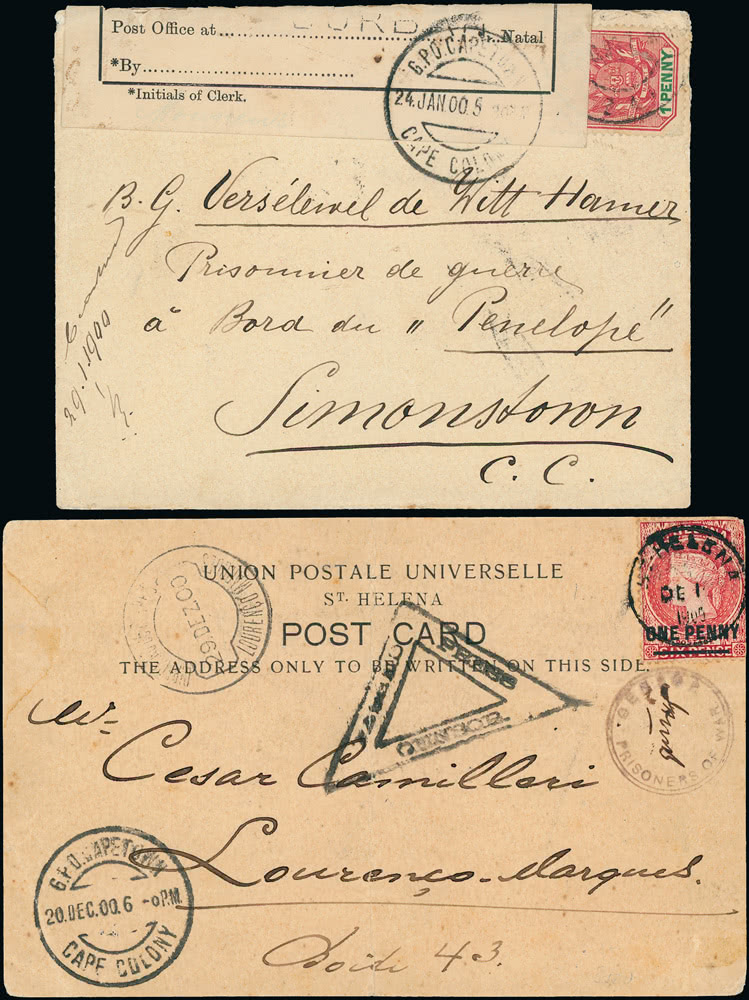 Post Office at..............Natal
*By
*Initials of Clerk.
G.P.O. CAPETOWN
24. JAN 00. 5
CAPE COLONY
1 PENNY
B. G. Versélewel de Witt Hamer
Prisonnier de guerre
à Bord du „ Penelope"
Simonstown
C. C.
29.1.1900
UNION POSTALE UNIVERSELLE
ST. HELENA
POST CARD
THE ADDRESS ONLY TO BE WRITTEN ON THIS SIDE.
LOURENÇO MARQUES
19 DEZ. 00
ST HELENA
DE 1
1900
ONE PENNY
PRESS
CENSOR
CENSOR
PRISONERS OF WAR
Mr.
Cesar Camilleri
Lourenço-Marques.
G.P.O. CAPETOWN
20. DEC. 00. 6 - 0 P.M.
CAPE COLONY
43.